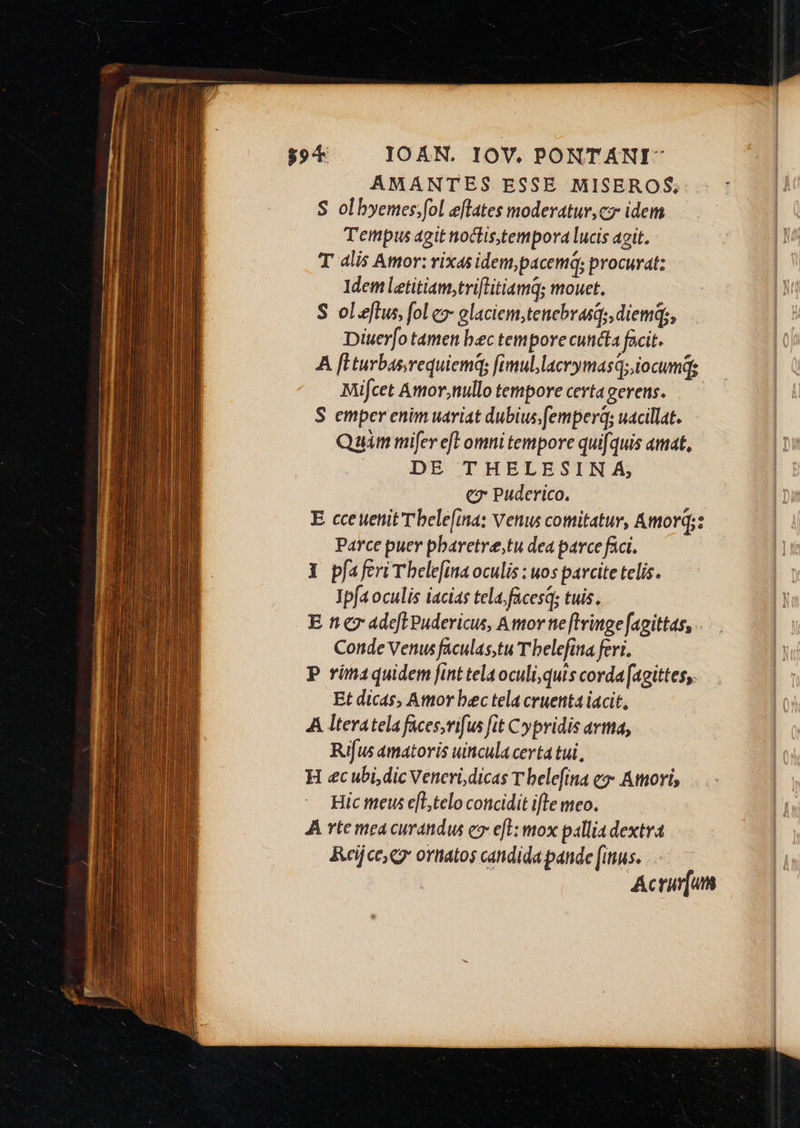 594 IOAN. IOV. PONTANI
AMANTES ESSE MISEROS,
S ol hyemes, ſol æſtates moderatur, & idem
Tempus agit noctis, tempora lucis agit.
T alis Amor: rixas idem, pacemq́; procurat:
Idem lætitiam, triſtitiamq́; mouet.
S ol æſtus, ſol & glaciem, tenebrasq́;, diemq́;,
Diuerſo tamen hæc tempore cuncta facit.
A ſt turbas, requiemq́; ſimul, lacrymasq́;, iocumq́;
Miſcet Amor, nullo tempore certa gerens.
S emper enim uariat dubius, ſemperq́; uacillat.
Quàm miſer eſt omni tempore quiſquis amat,
DE THELESINA,
& Puderico.
E cce uenit Theleſina: Venus comitatur, Amorq́;:
Parce puer pharetræ, tu dea parce faci.
I pſa feri Theleſina oculis: uos parcite telis.
Ipſa oculis iacias tela, facesq́; tuis.
E n & adeſt Pudericus, Amor ne ſtringe ſagittas,
Conde Venus faculas, tu Theleſina feri.
P rima quidem ſint tela oculi, quis corda ſagittes,
Et dicas, Amor hæc tela cruenta iacit,
A ltera tela faces, riſus ſit Cypridis arma,
Riſus amatoris uincula certa tui,
H æc ubi, dic Veneri, dicas Theleſina & Amori,
Hic meus eſt, telo concidit iſte meo.
A rte mea curandus & eſt: mox pallia dextra
Reijce, & ornatos candida pande ſinus.
Ac rurſum